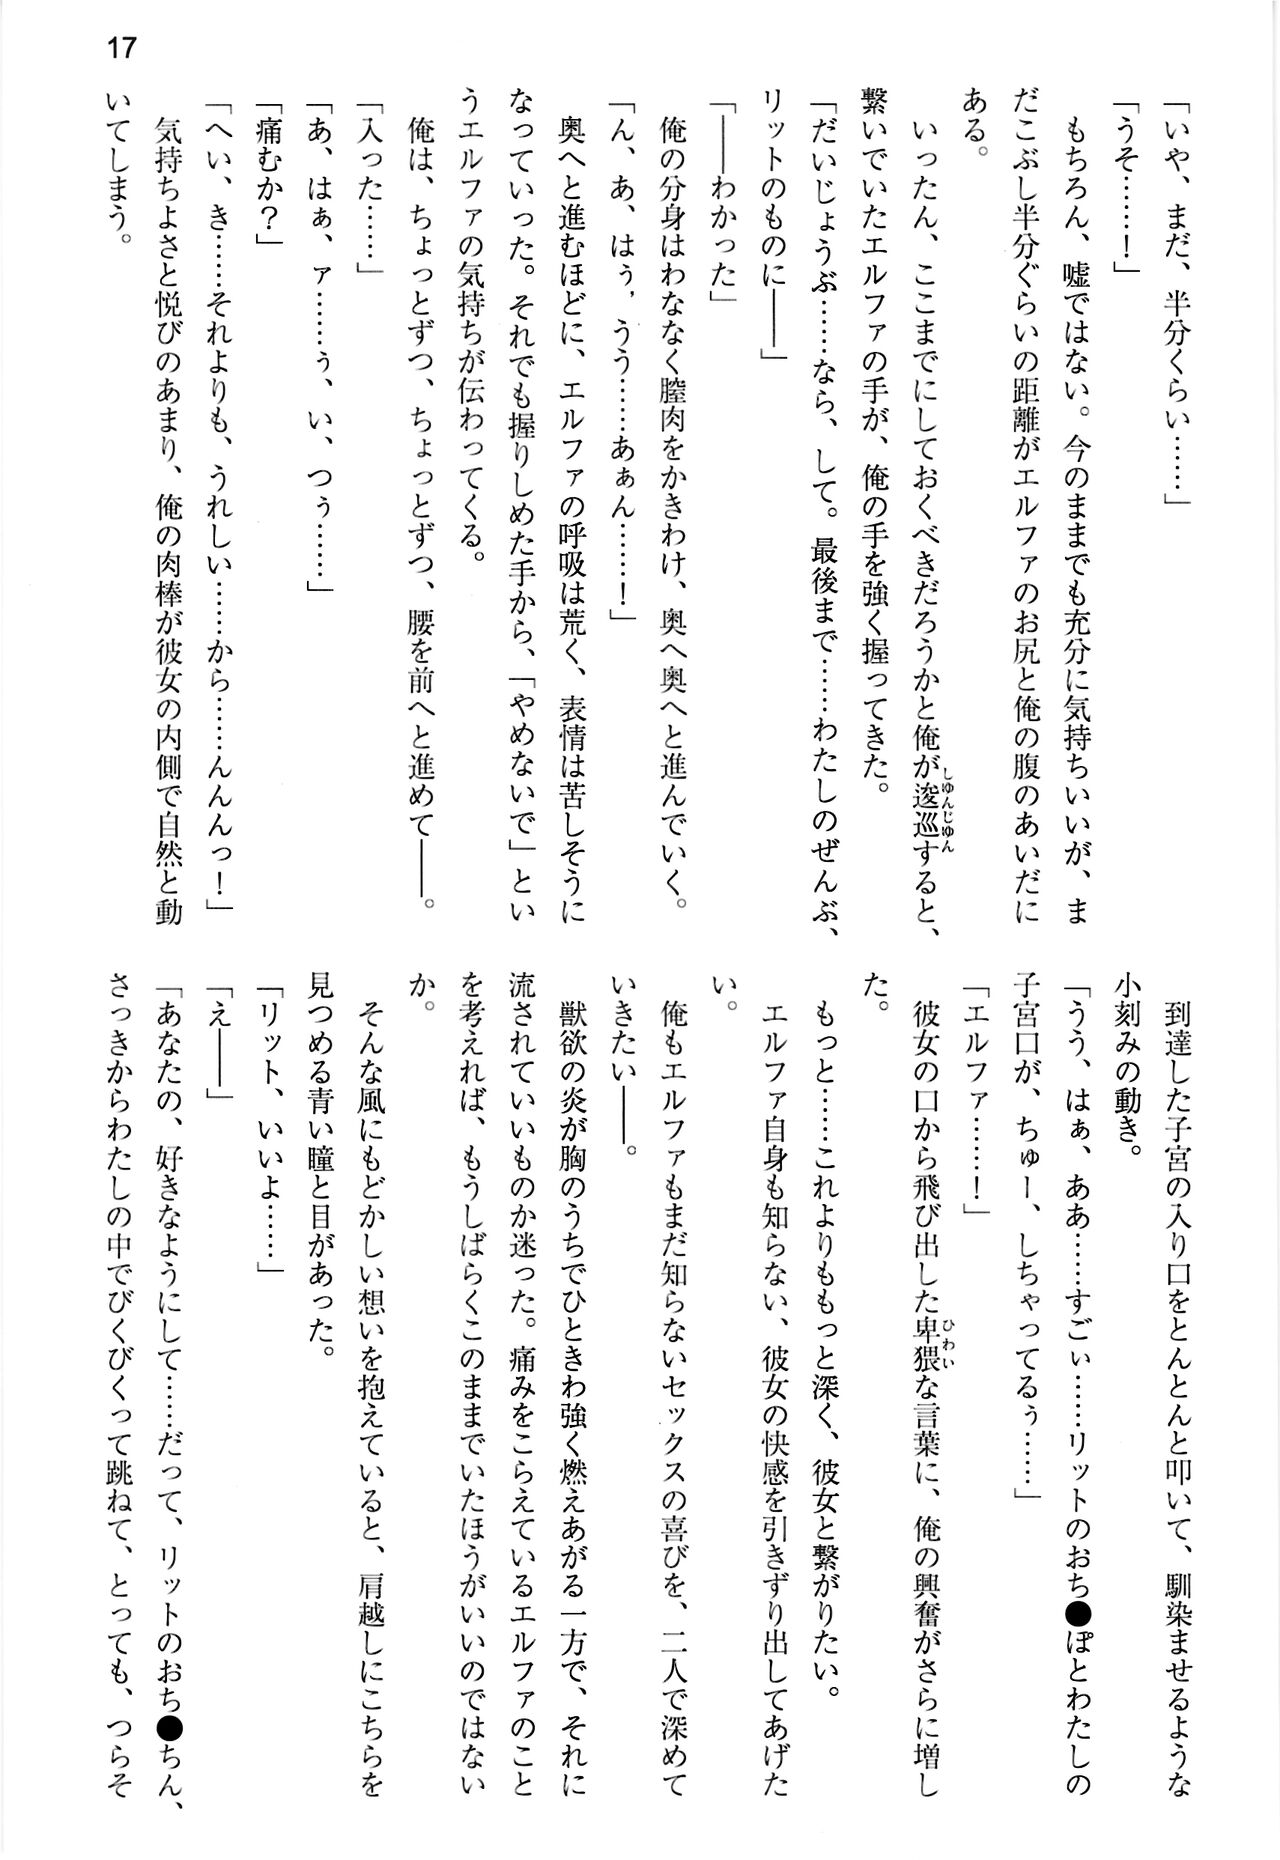 17
「いや、まだ、半分くらい……」
「うそ……！」
もちろん、嘘ではない。今のままでも充分に気持ちいいが、ま
だこぶし半分ぐらいの距離がエルファのお尻と俺の腹のあいだに
ある。
いったん、ここまでにしておくべきだろうかと俺が逡巡すると、
しゅんじゅん
繋いでいたエルファの手が、俺の手を強く握ってきた。
「だいじょうぶ……なら、して。最後まで……わたしのぜんぶ、
リットのものに――」
「――わかった」
俺の分身はわななく膣肉をかきわけ、奥へ奥へと進んでいく。
「ん、あ、はぅ、うう……あぁん……！」
奥へと進むほどに、エルファの呼吸は荒く、表情は苦しそうに
なっていった。それでも握りしめた手から、「やめないで」とい
うエルファの気持ちが伝わってくる。
俺は、ちょっとずつ、ちょっとずつ、腰を前へと進めて――。
「入った……」
「あ、はぁ、ァ……ぅ、い、つぅ……」
「痛むか？」
「へい、き……それよりも、うれしい……から……んんんっ！」
気持ちよさと悦びのあまり、俺の肉棒が彼女の内側で自然と動
いてしまう。
到達した子宮の入り口をとんとんと叩いて、馴染ませるような
小刻みの動き。
「うう、はぁ、ああ……すごぃ……リットのおち●ぽとわたしの
子宮口が、ちゅー、しちゃってるぅ……」
「エルファ……！」
彼女の口から飛び出した卑猥な言葉に、俺の興奮がさらに増し
ひわい
た。
もっと……これよりももっと深く、彼女と繋がりたい。
エルファ自身も知らない、彼女の快感を引きずり出してあげた
い。
俺もエルファもまだ知らないセックスの喜びを、二人で深めて
いきたい――。
獣欲の炎が胸のうちでひときわ強く燃えあがる一方で、それに
流されていいものか迷った。痛みをこらえているエルファのこと
を考えれば、もうしばらくこのままでいたほうがいいのではない
か。
そんな風にもどかしい想いを抱えていると、肩越しにこちらを
見つめる青い瞳と目があった。
「リット、いいよ……」
「え――」
「あなたの、好きなようにして……だって、リットのおち●ちん、
さっきからわたしの中でびくびくって跳ねて、とっても、つらそ